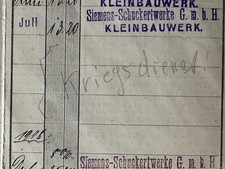 Juni 13.20 KLEINBAUWERK.
Juli 13.20 Siemens-Schuckertwerke G. m. b. H.
KLEINBAUWERK.
Kriegsdienst
1918.
Siemens-Schuckertwerke G. m. b. H